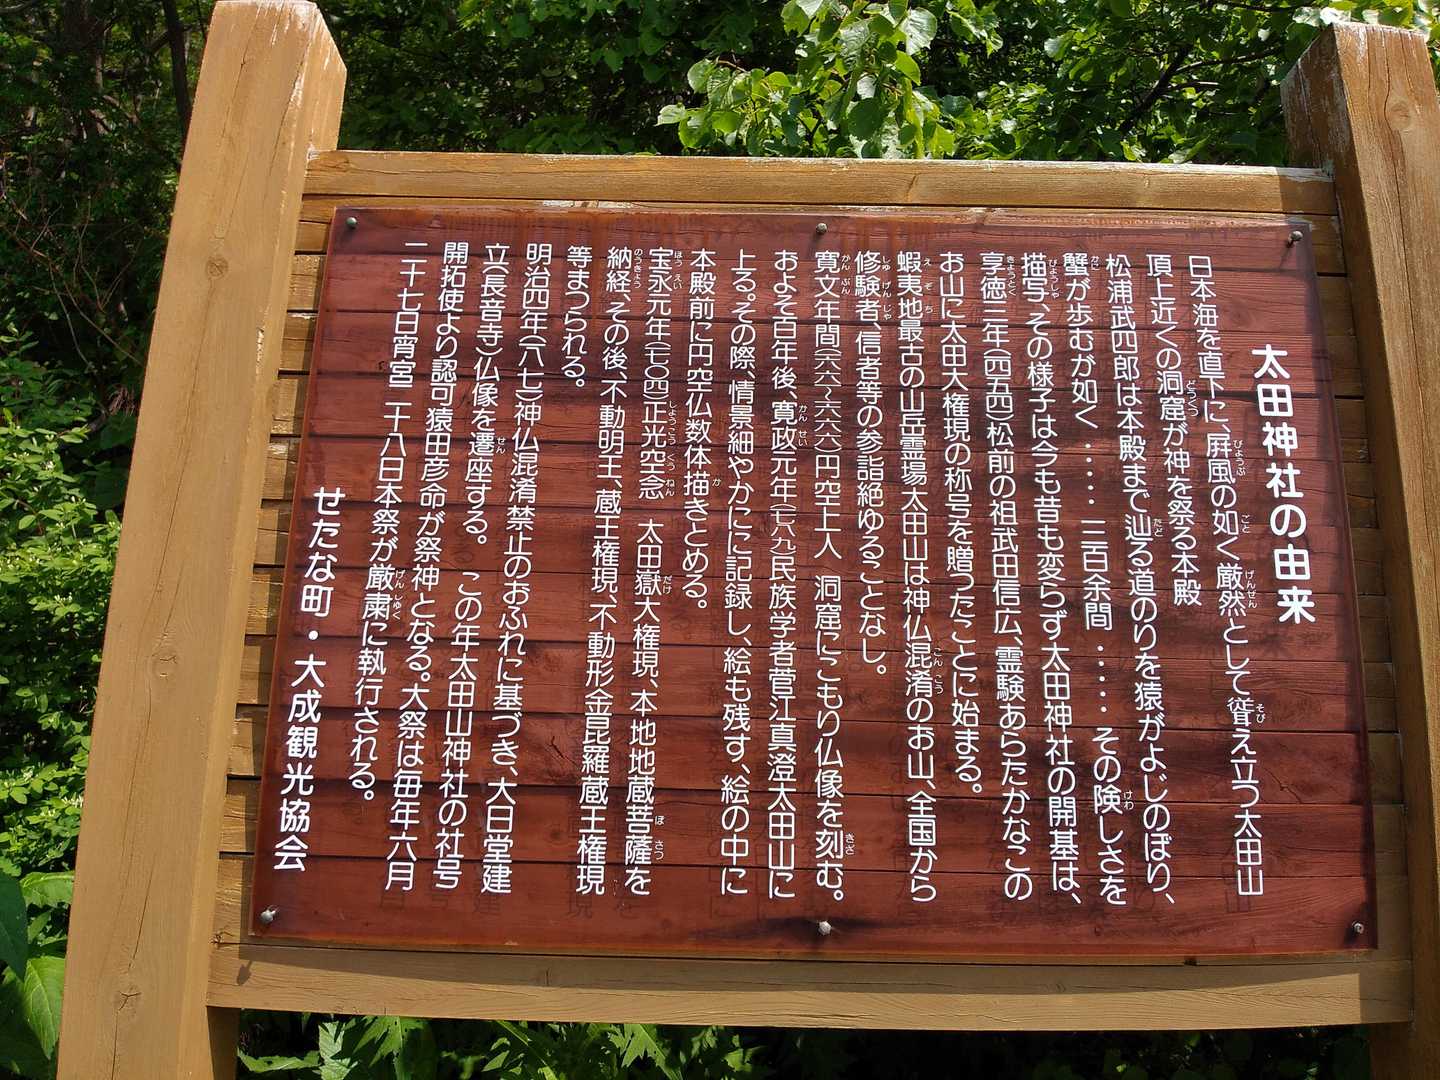 太田神社の由来
日本海を直下に、屏風の如く厳然として聳え立つ太田山
頂上近くの洞窟が神を祭る本殿
松浦武四郎は本殿まで辿る道のりを猿がよじのぼり、
蟹が歩むが如く・・・・・三百余間・・・・・その険しさを
描写、その様子は今も昔も変らず太田神社の開基は、
享徳三年(一四五四)松前の祖武田信広、霊験あらたかなこの
お山に太田大権現の称号を贈ったことに始まる。
蝦夷地最古の山岳霊場太田山は神仏混淆のお山、全国から
修験者、信者等の参詣絶ゆることなし。
寛文年間(一六六一~一六六六)円空上人 洞窟にこもり仏像を刻む。
およそ百年後、寛政元年(一七八九)民族学者菅江真澄太田山に
上る。その際、情景細やかにに記録し、絵も残す、絵の中に
本殿前に円空仏数体描きとめる。
宝永元年(一七〇四)正光空念 太田嶽大権現、本地地蔵菩薩を
納経、その後、不動明王、蔵王権現、不動形金昆羅蔵王権現
等まつられる。
明治四年(一八七一)神仏混淆禁止のおふれに基づき、大日堂建
立(長音寺)仏像を遷座する。 この年太田山神社の社号
開拓使より認可猿田彦命が祭神となる。大祭は毎年六月
二十七日宵宮 二十八日本祭が厳粛に執行される。
せたな町・大成観光協会